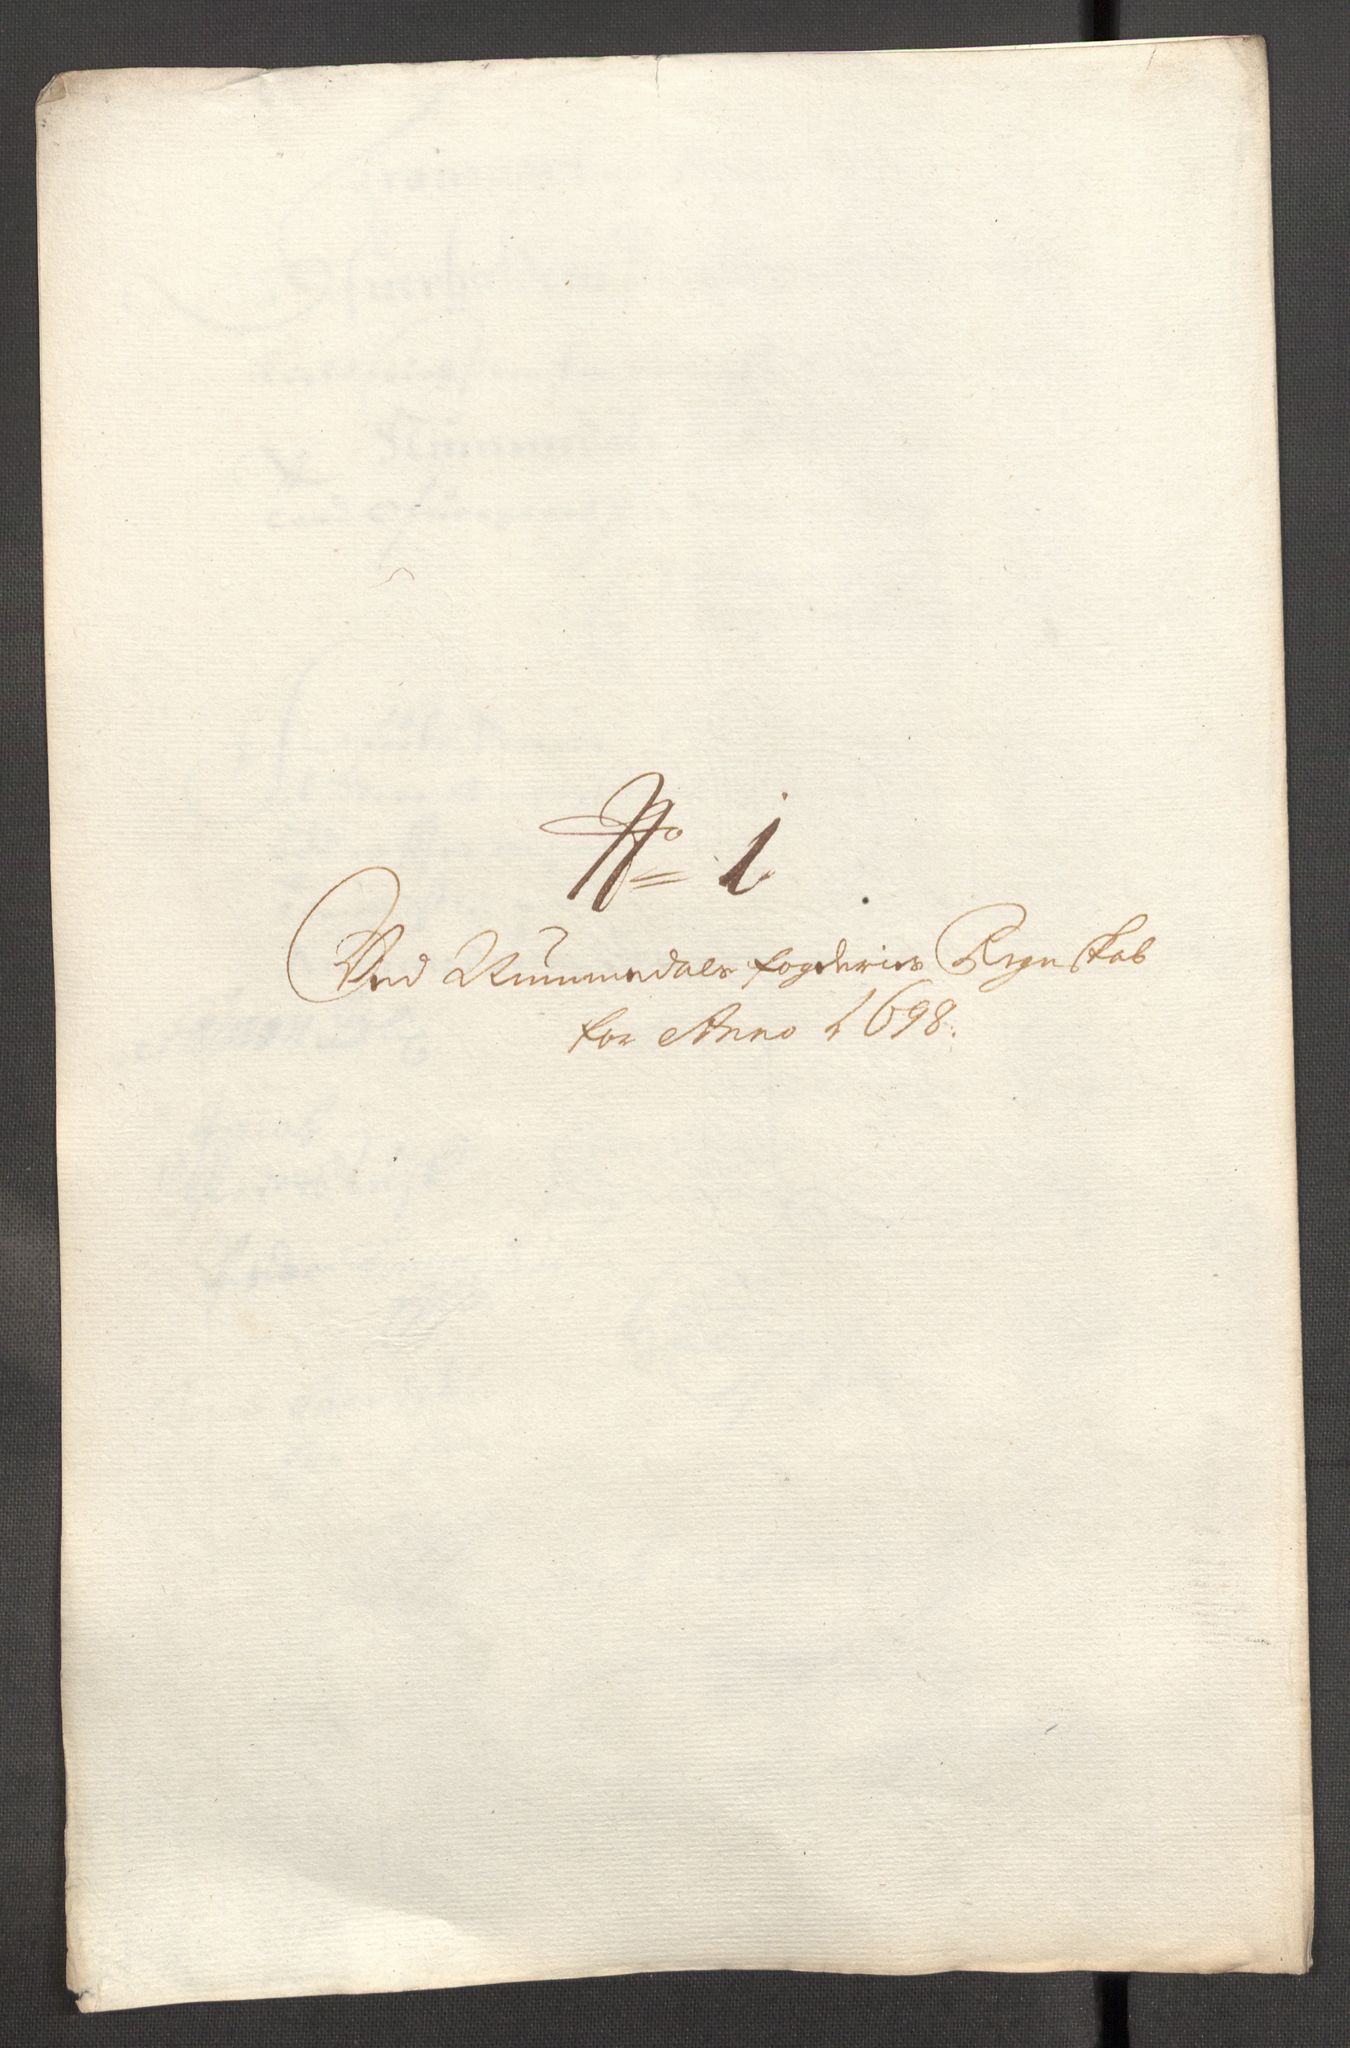 No 1
Ved Nummedals fogderies Regnskab
for Anno 1698.